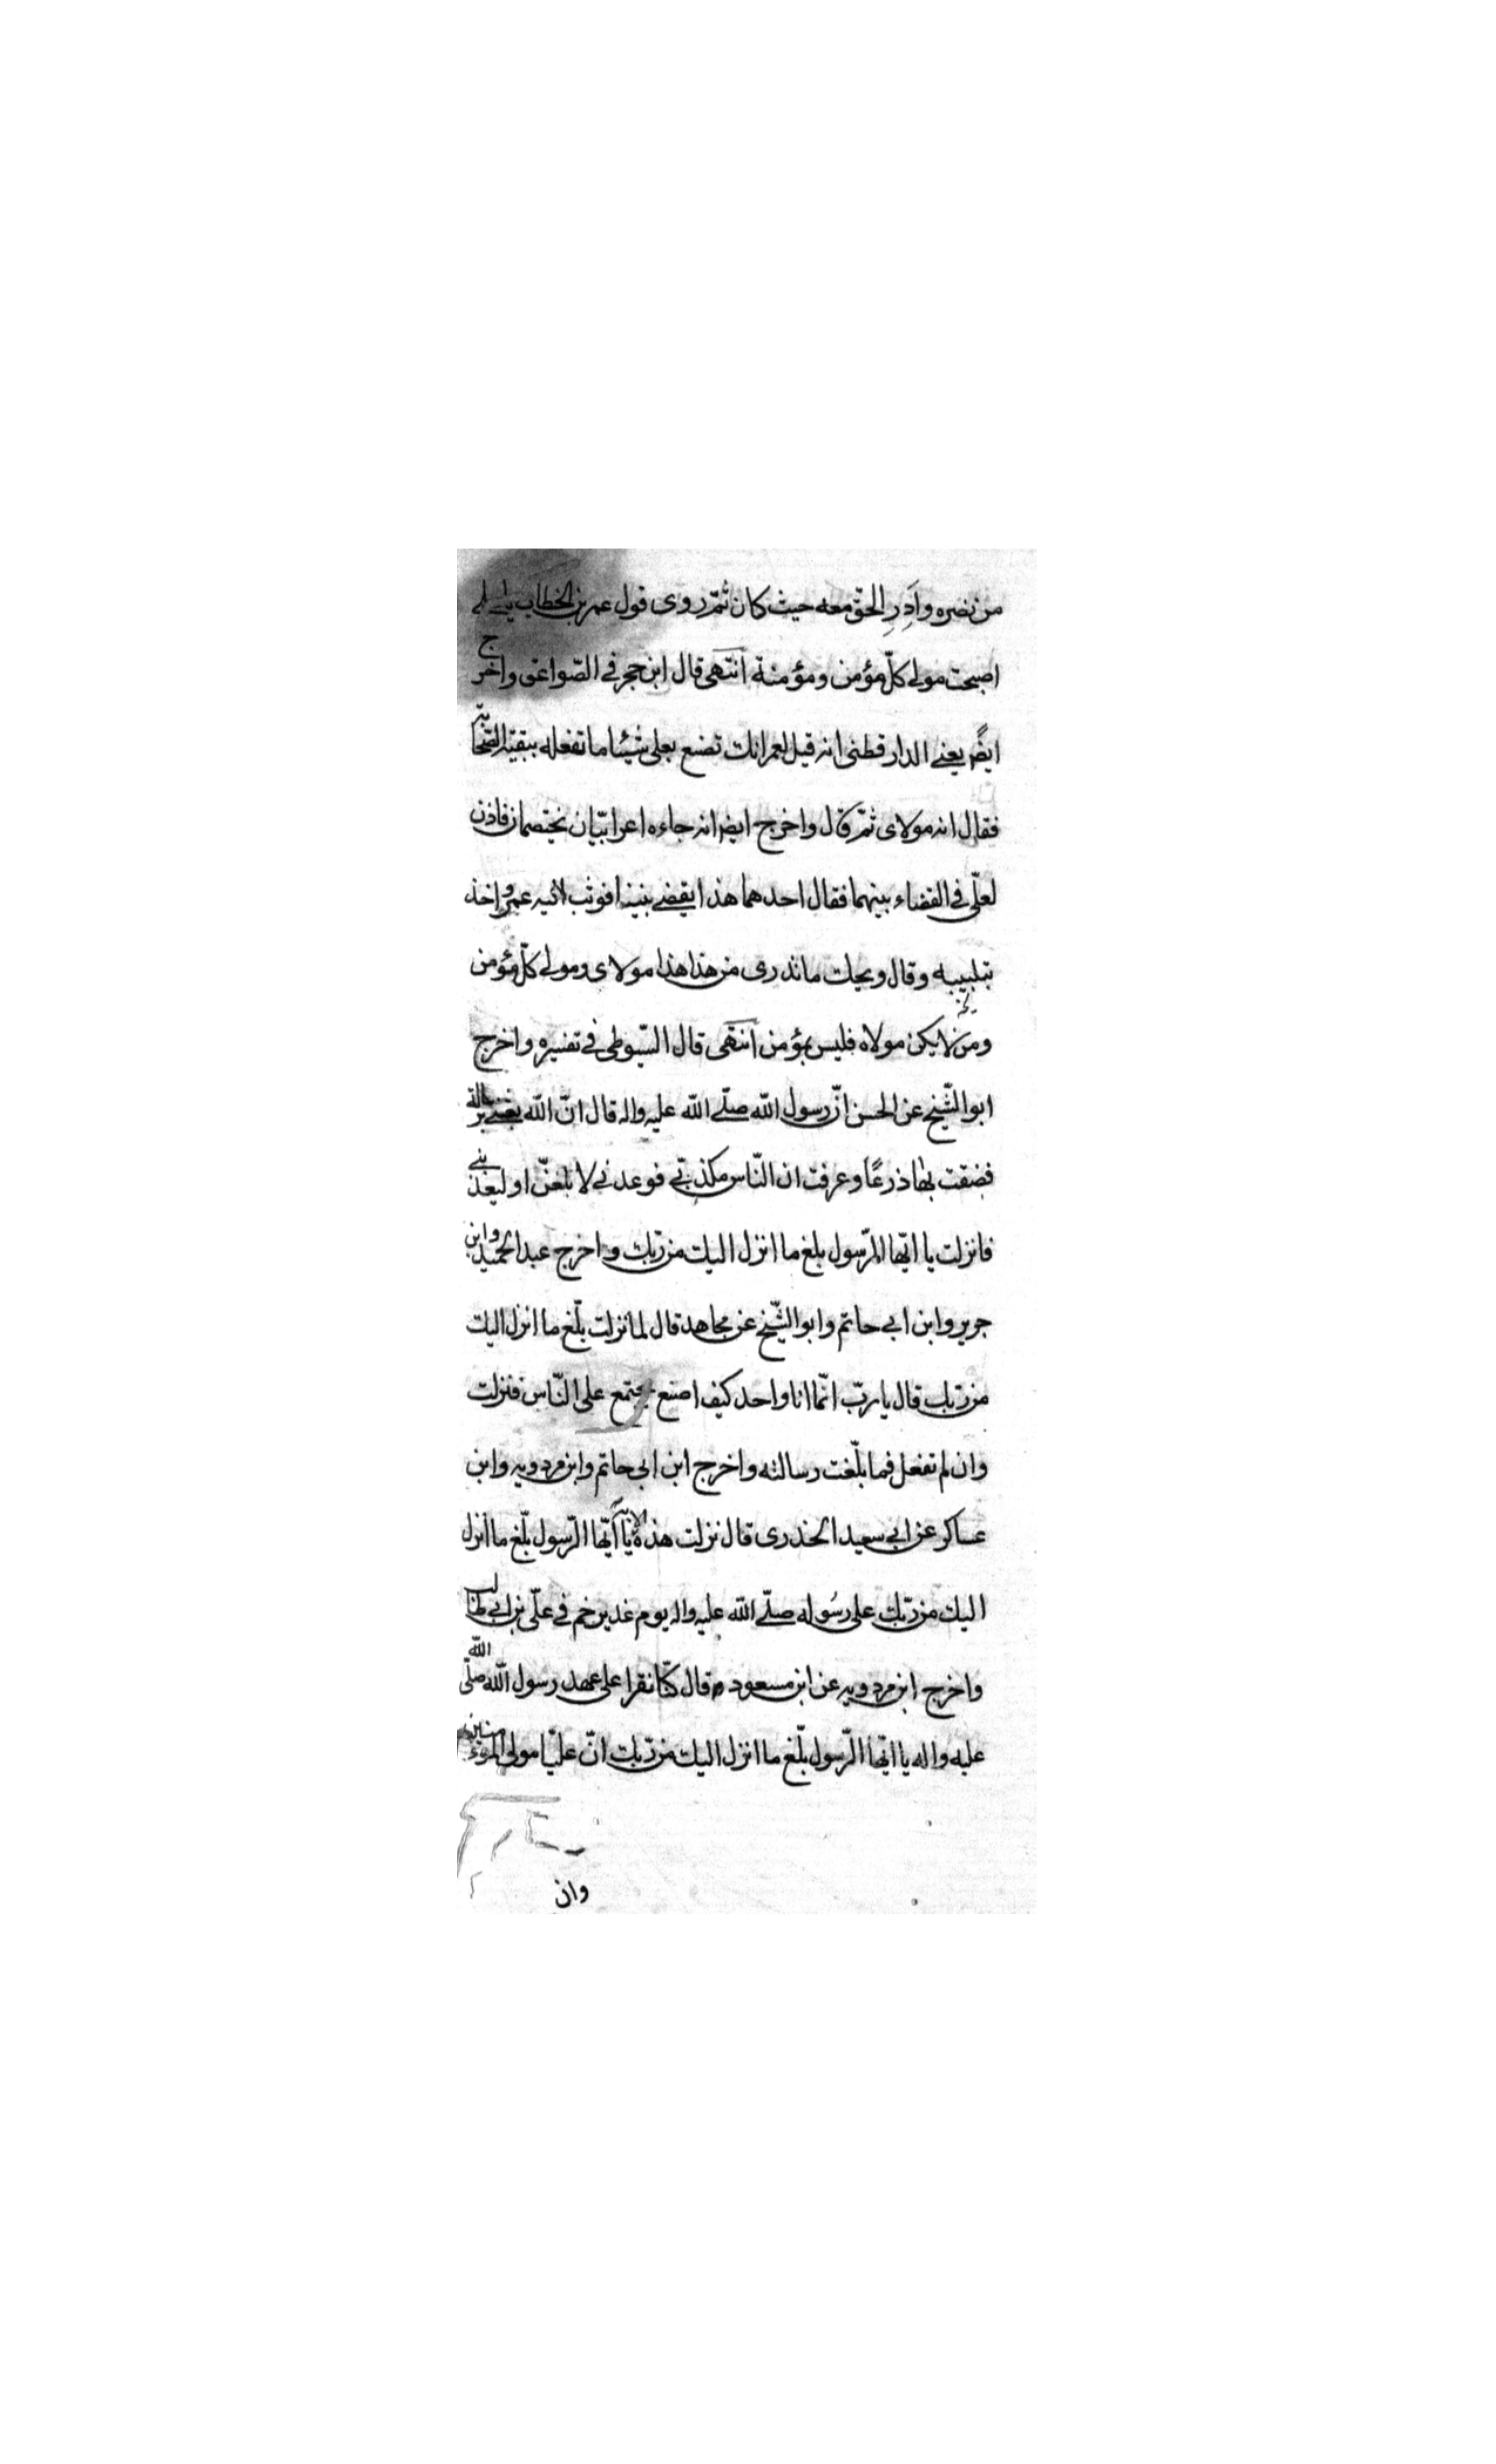 من نصره وَاَدِرِ الحقّ معه حيث كان ثمّ روى قول عمر بن الخطاب يا على
اصبحت مولى كلّ مؤمن ومؤمنة انتهى قال ابن حجر فى الصّواعق واخرج
ايضًا يعنى الدار قطنى انه قيل لعمر انك تصنع بعلى شيئا ما تفعله ببقيّة الصّحابة
فقال انه مولاى ثمّ قال واخرج ايضا انه جاءه اعرابيّان يختصمان فاذن
لعلّى فى القضاء بينهما فقال احدهما هذا يقضى بيننا فوثب اليه عمر واخذ
بتلبيبه وقال ويحك ما تدرى من هذا هذا مولاى ومولى كلّ مؤمن
ومن لا يكن مولاه فليس بمؤمن انتهى قال السّيوطى فى تفسيره واخرج
ابو الشّيخ عن الحسن انّ رسول الله صلّى الله عليه واله قال انّ الله بعثنى برسالة
فضقت بها ذرعًا وعرفت ان النّاس مكذبىّ فوعدنى لابلغنّ او ليعذبنى
فانزلت يا ايّها الرّسول بلغ ما انزل اليك من ربّك واخرج عبد الحميد وابن
جرير وابن ابى حاتم وابو الشّيخ عن مجاهد قال لما نزلت بلّغ ما انزل اليك
من ربّك قال يا ربّ انّما انا واحد كيف اصنع يجتمع على النّاس فنزلت
وان لم تفعل فما بلّغت رسالته واخرج ابن ابى حاتم وابن مردويه وابن
عساكر عن ابى سعيد الخدرى قال نزلت هذه الاية يا ايّها الرّسول بلّغ ما انزل
اليك من ربّك على رسُوله صلّى الله عليه واله يوم غدير خم فى علّى بن ابى طالب
واخرج ابن مردويه عن ابن مسعود قال كنّا نقرا على عهد رسول الله صلّى الله
عليه واله يا ايّها الرّسول بلّغ ما انزل اليك من ربّك انّ عليّا مولى المؤمنين
وان